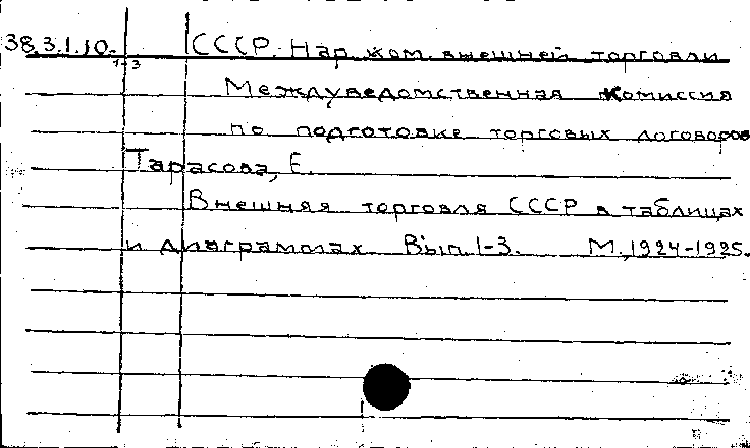 38.3.1.10. СССР. Нар. ком. внешней торговли
1-3
Междуведомственная комиссия
по подготовке торговых договоров
Тарасова, Е.
Внешняя торговля СССР в таблицах
и диаграммах Вып. 1-3. М., 1924-1925.